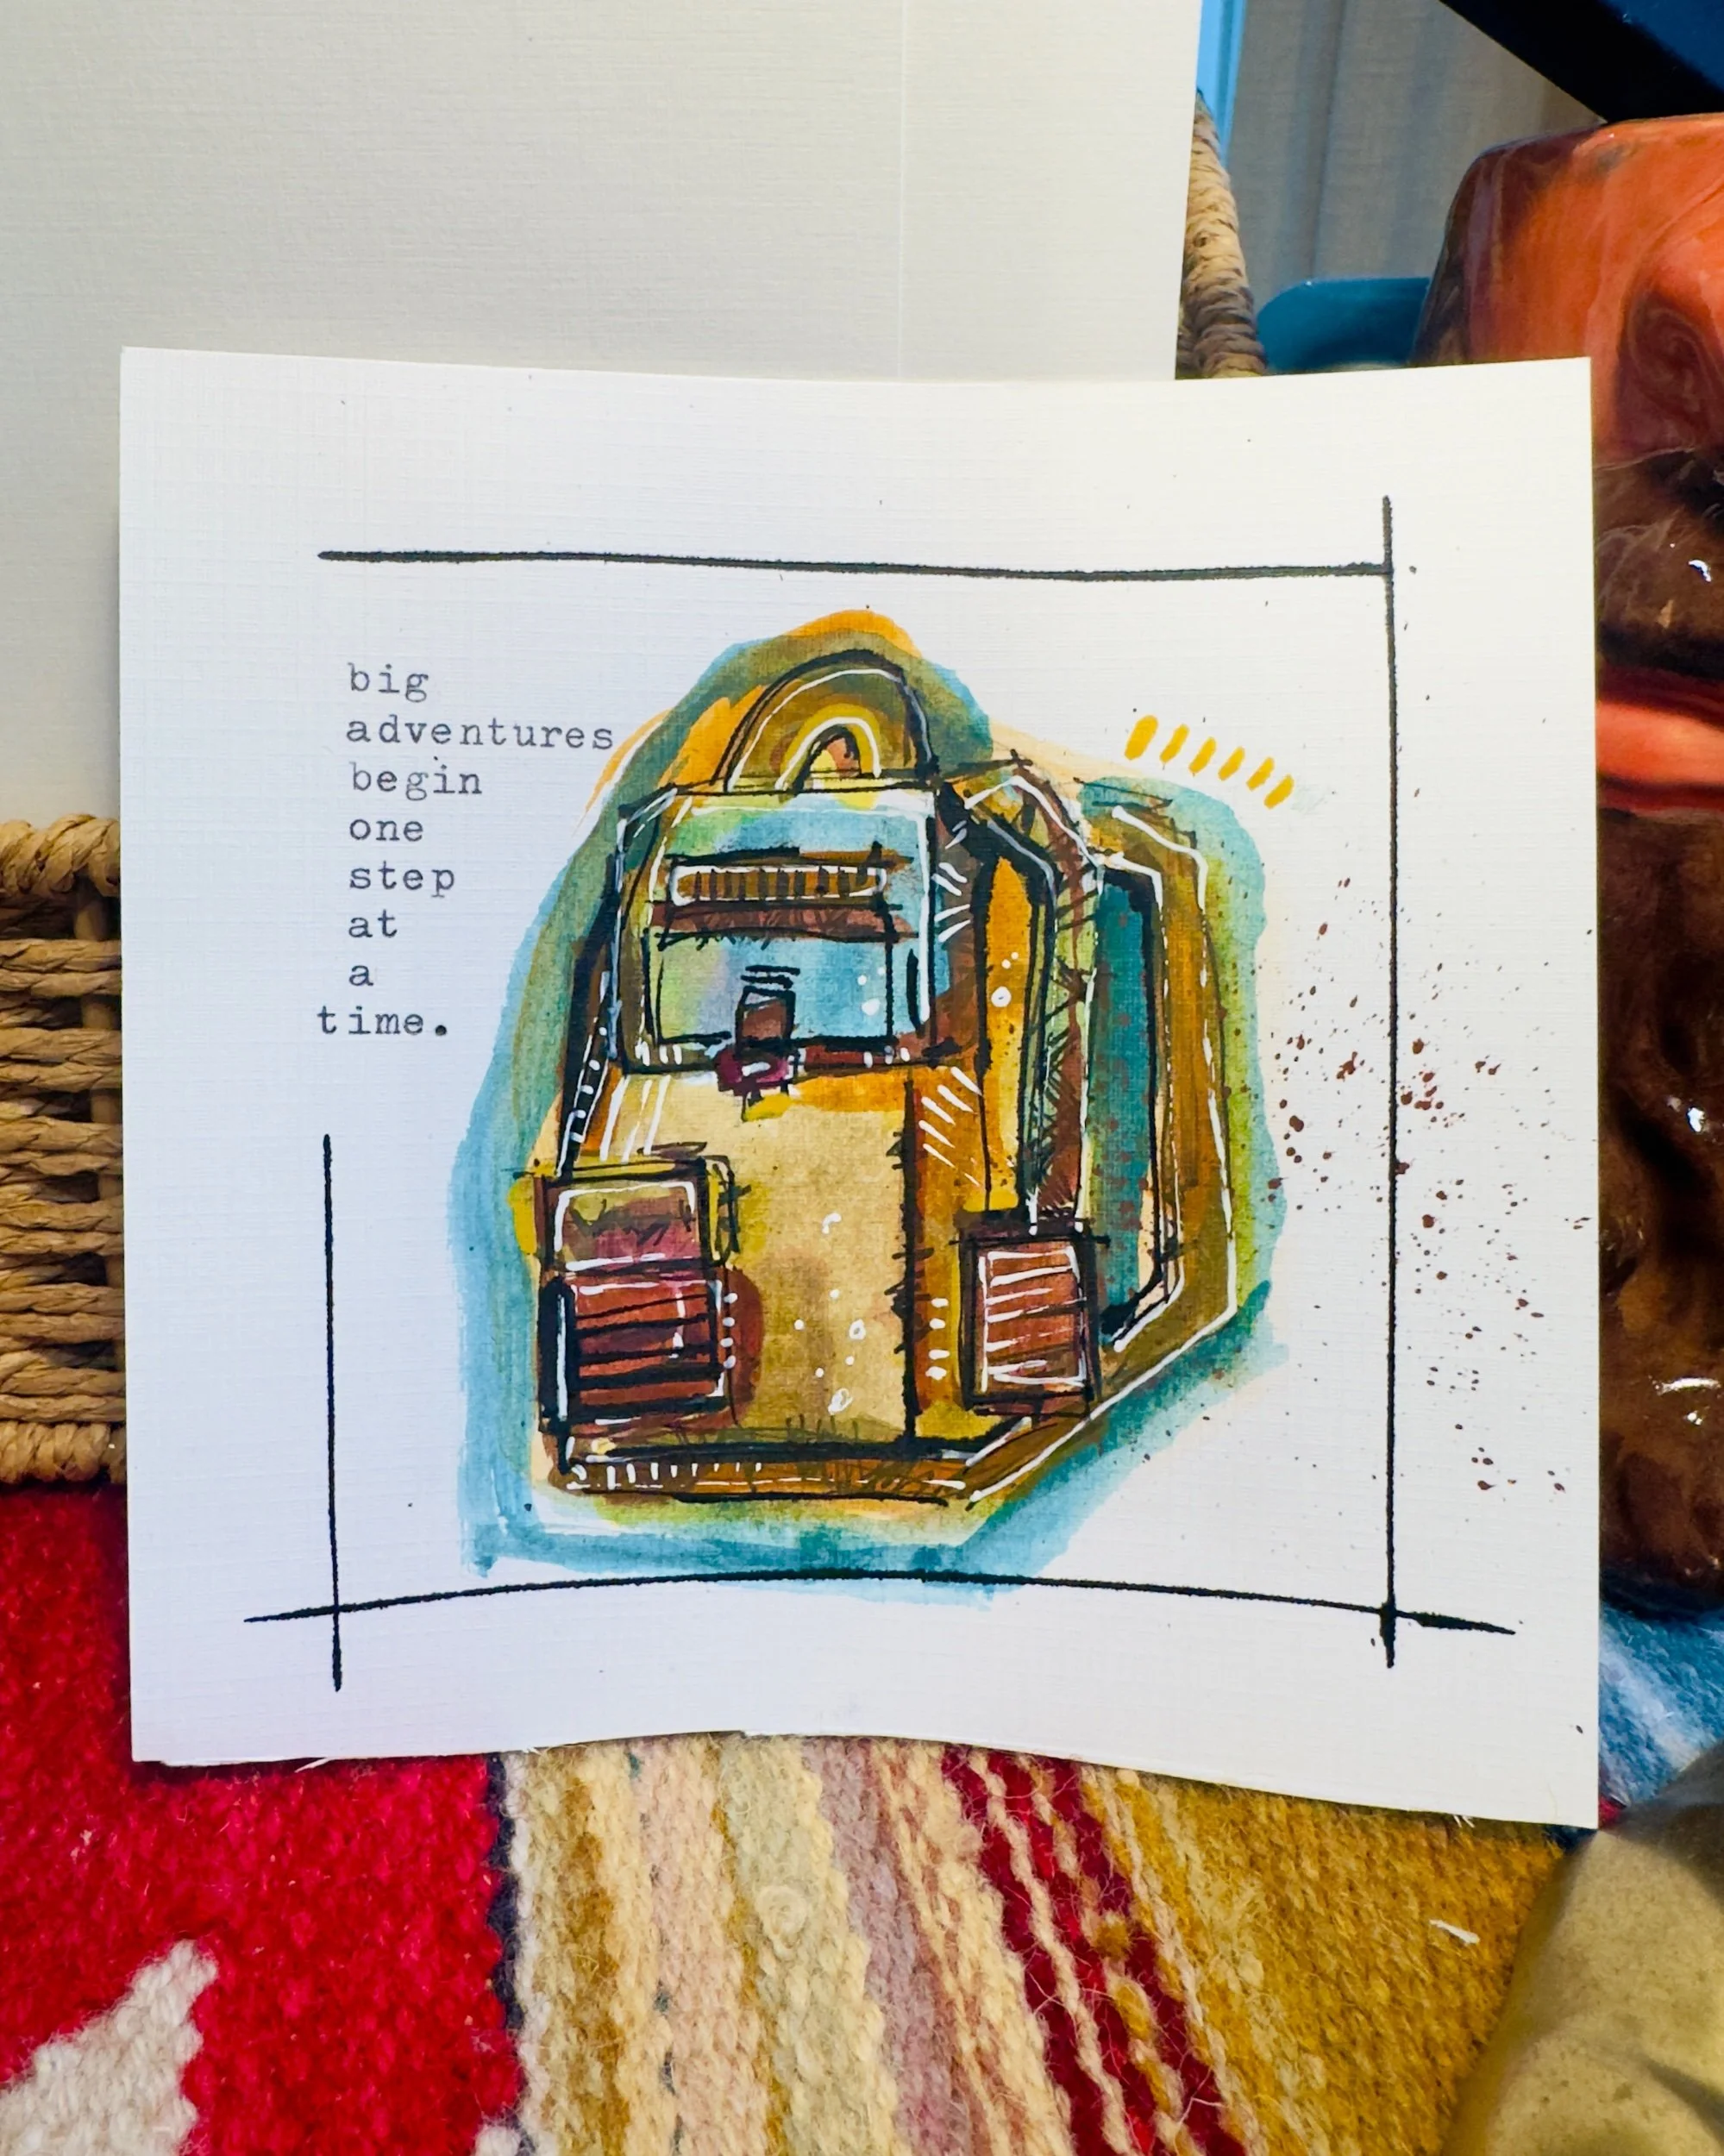 big
adventures
begin
one
step
at
a
time.